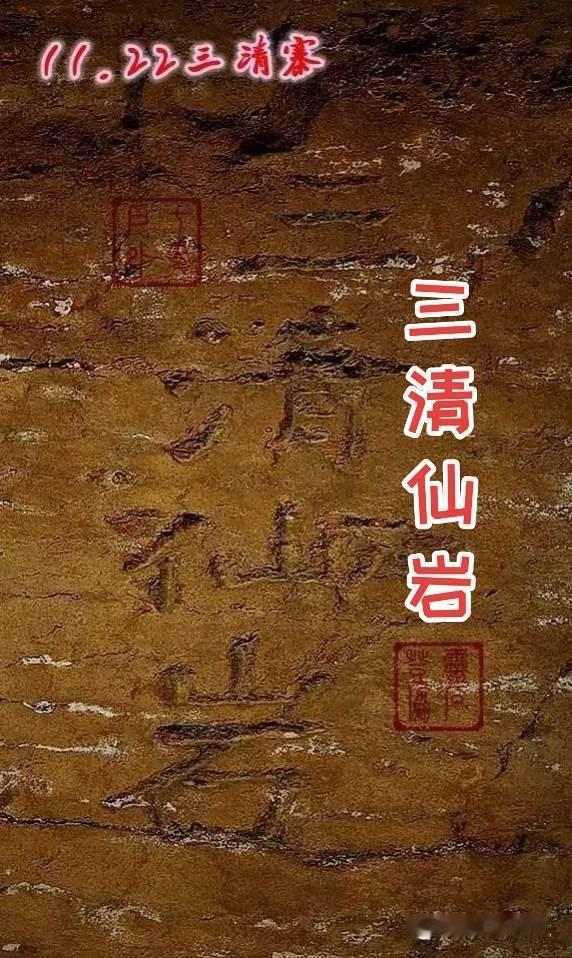 11.22三清寨
三清仙岩
三清仙岩